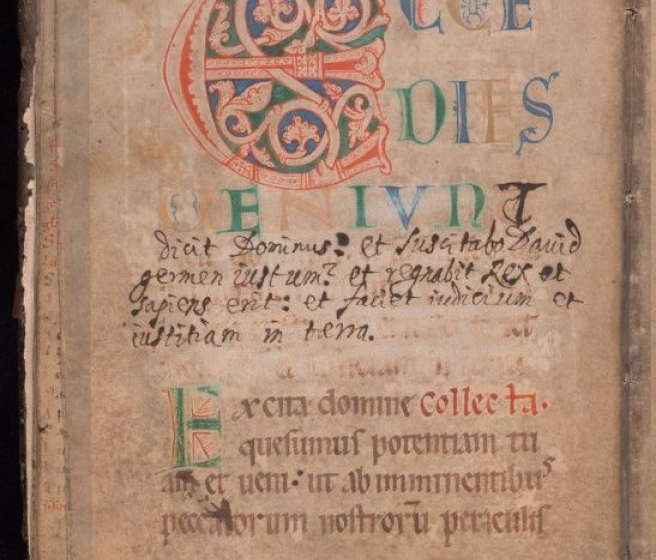 ECCE
DIES
UENIUNT
dicit Dominus: et suscitabo David
germen iustum: et regnabit Rex et
sapiens erit: et faciet iudicium et
iustitiam in terra.
Excita domine Collecta.
quesumus potentiam tu
am et ueni. ut ab imminentibus
peccatorum nostrorū periculis